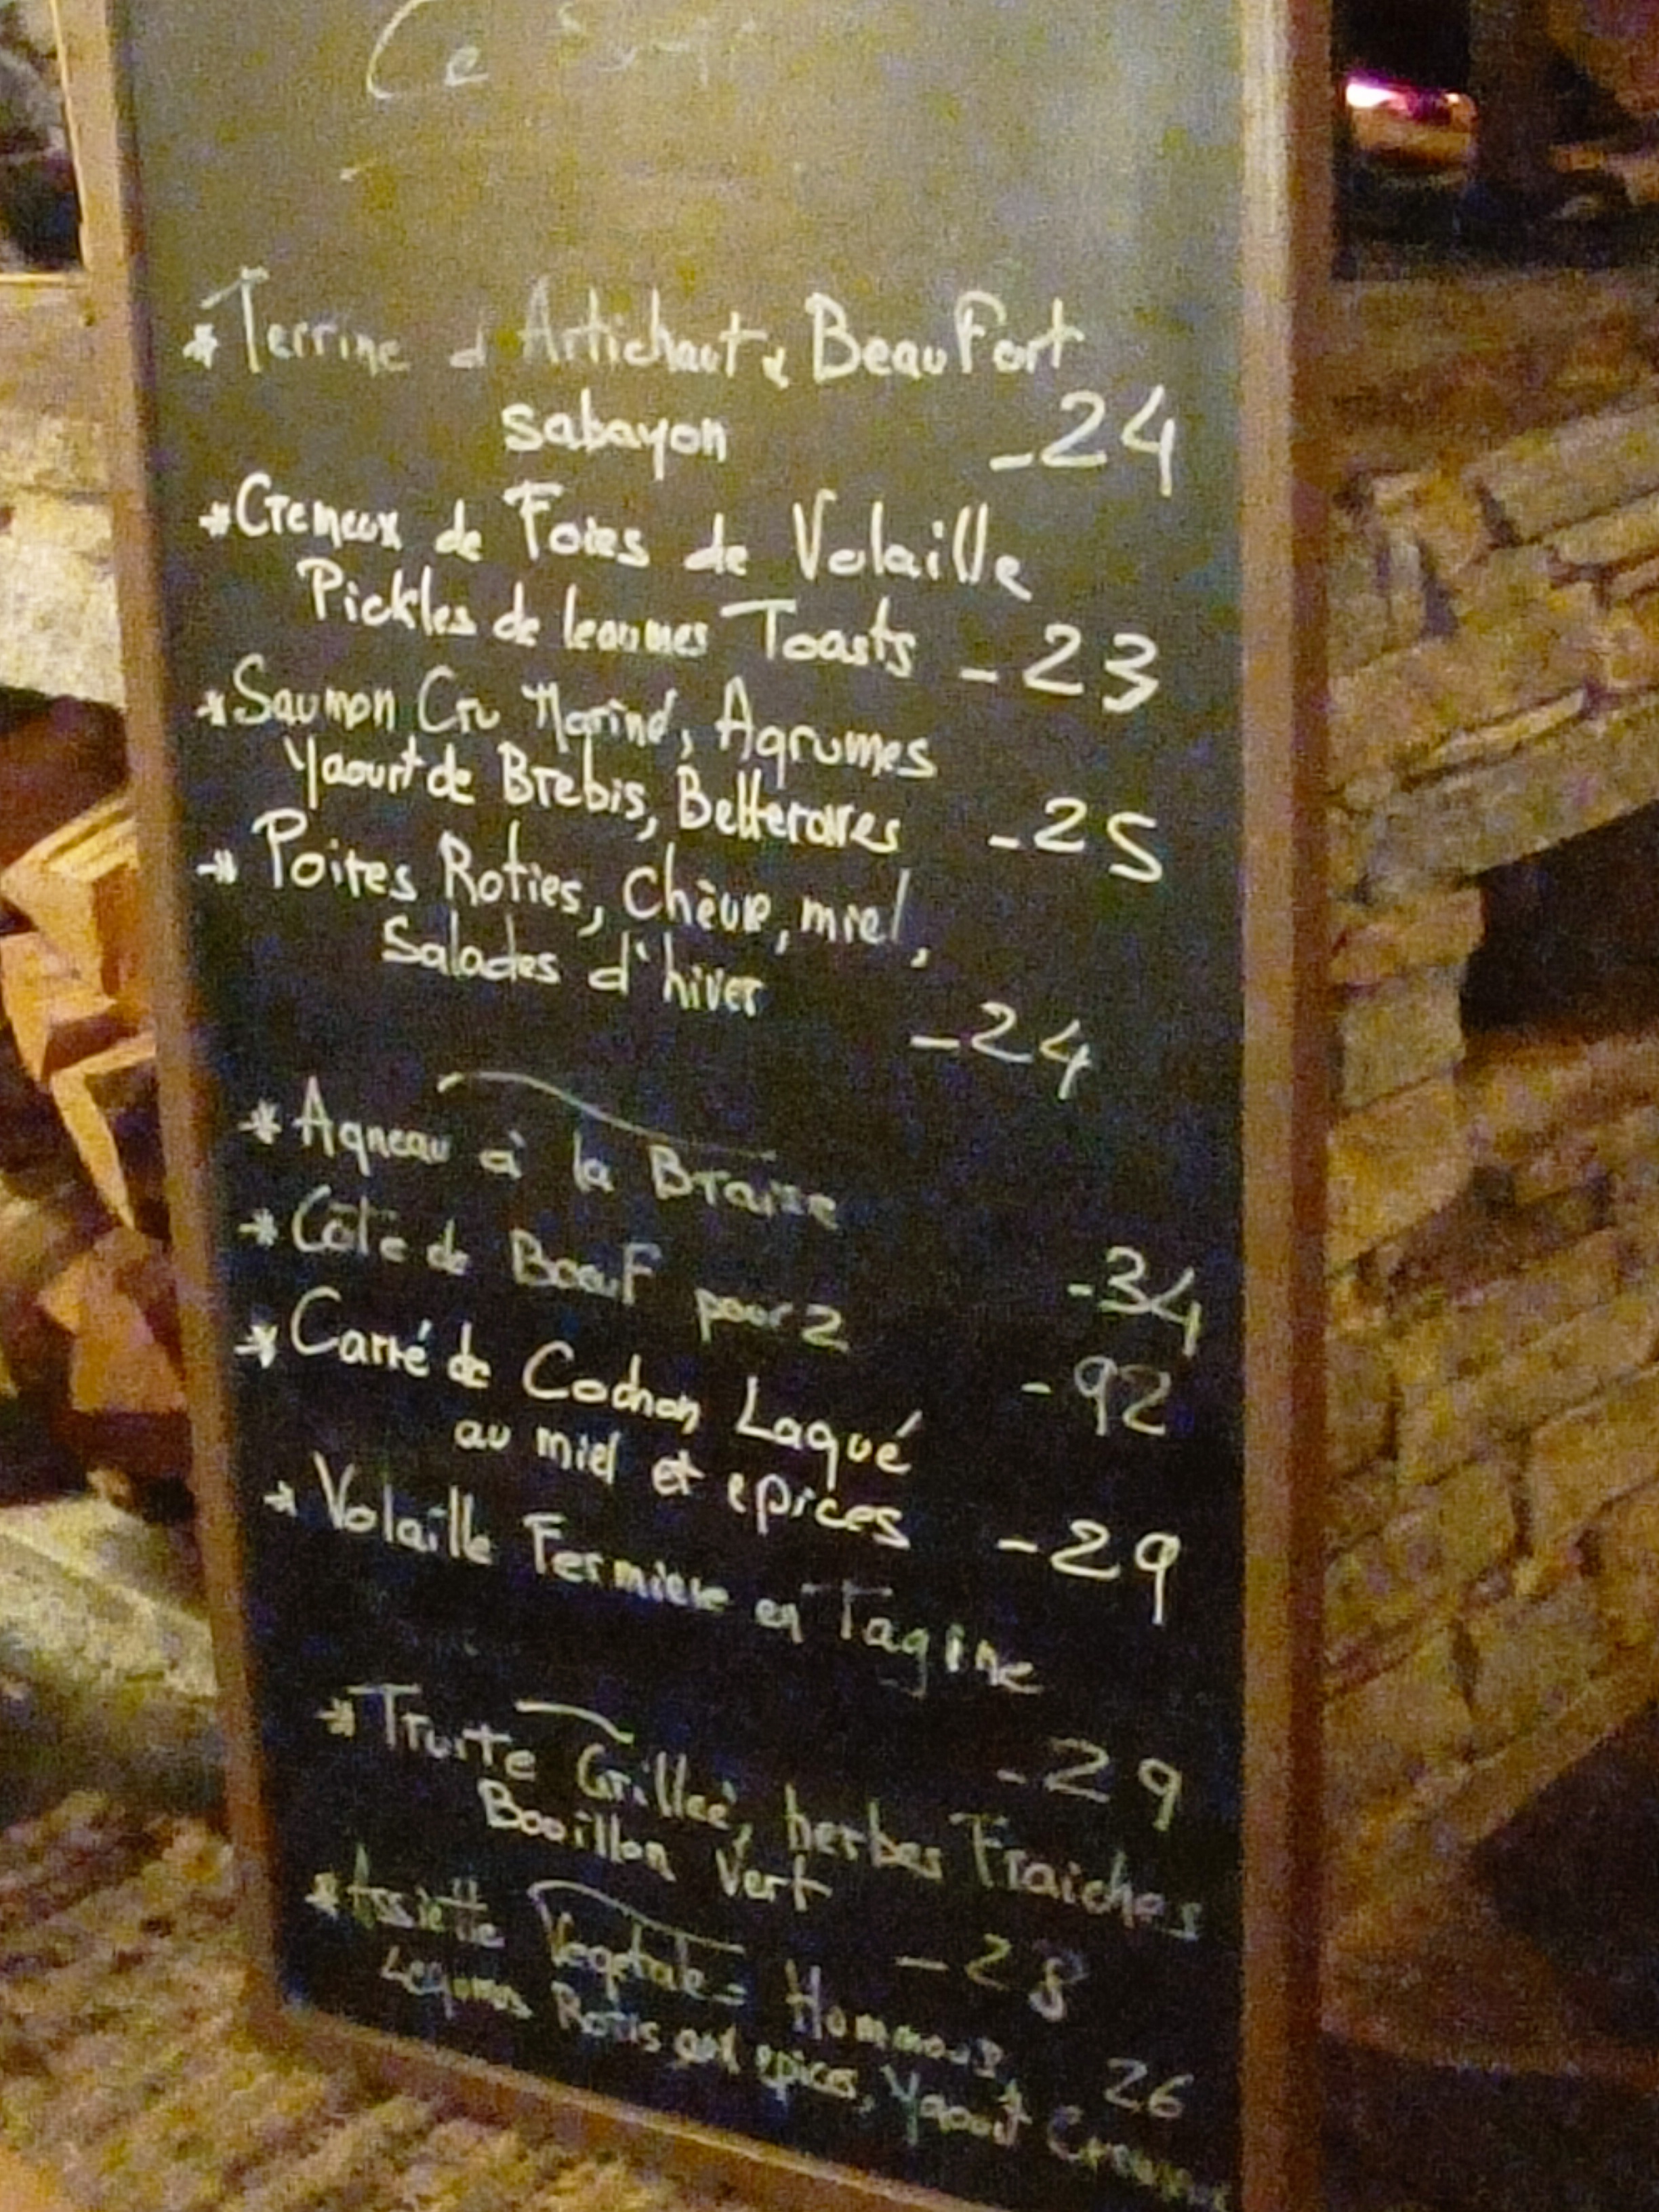 Ce
* Terrine d Artichaut & Beaufort
sabayon -24
* Cremeux de Foies de Volaille
Pickles de legumes Toasts - 23
* Saumon Cru Mariné, Agrumes
Yaourt de Brebis, Betteraves - 25
* Poires Roties, Chèvre, miel,
Salades d'hiver
-24
* Agneau à la Braise
-34
* Côte de Boeuf pour 2
-92
* Carré de Cochon Laqué
au miel et epices -29
* Volaille Fermière en Tagine
-29
* Truite Grilleé, herbes Fraiches
Bouillon Vert
-28
* Assiette Vegetale = Hommous 26
Legumes Rotis aux epices, Yaourt Cremeux